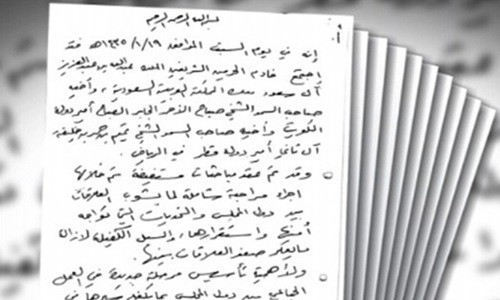 بسم الله الرحمن الرحيم
إنه في يوم السبت الموافق ١٤٣٥/١/١٩هـ فقد
اجتمع خادم الحرمين الشريفين الملك عبدالله بن عبدالعزيز
آل سعود ملك المملكة العربية السعودية، وأخيه
صاحب السمو الشيخ صباح الأحمد الجابر الصباح أمير دولة
الكويت وأخيه صاحب السمو الشيخ تميم بن حمد بن خليفة
آل ثاني أمير دولة قطر في الرياض.
وقد تم عقد مباحثات مستفيضة تم خلالها
اجراء مراجعة شاملة لما يشوب العلاقات
بين دول المجلس والتحديات التي تواجه
أمنها واستقرارها، والسبل الكفيلة لازالة
ما يعكر صفو العلاقات بينها.
ولأهمية تأسيس مرحلة جديدة في العمل
الجماعي بين دول المجلس بما يكفل سيرها في